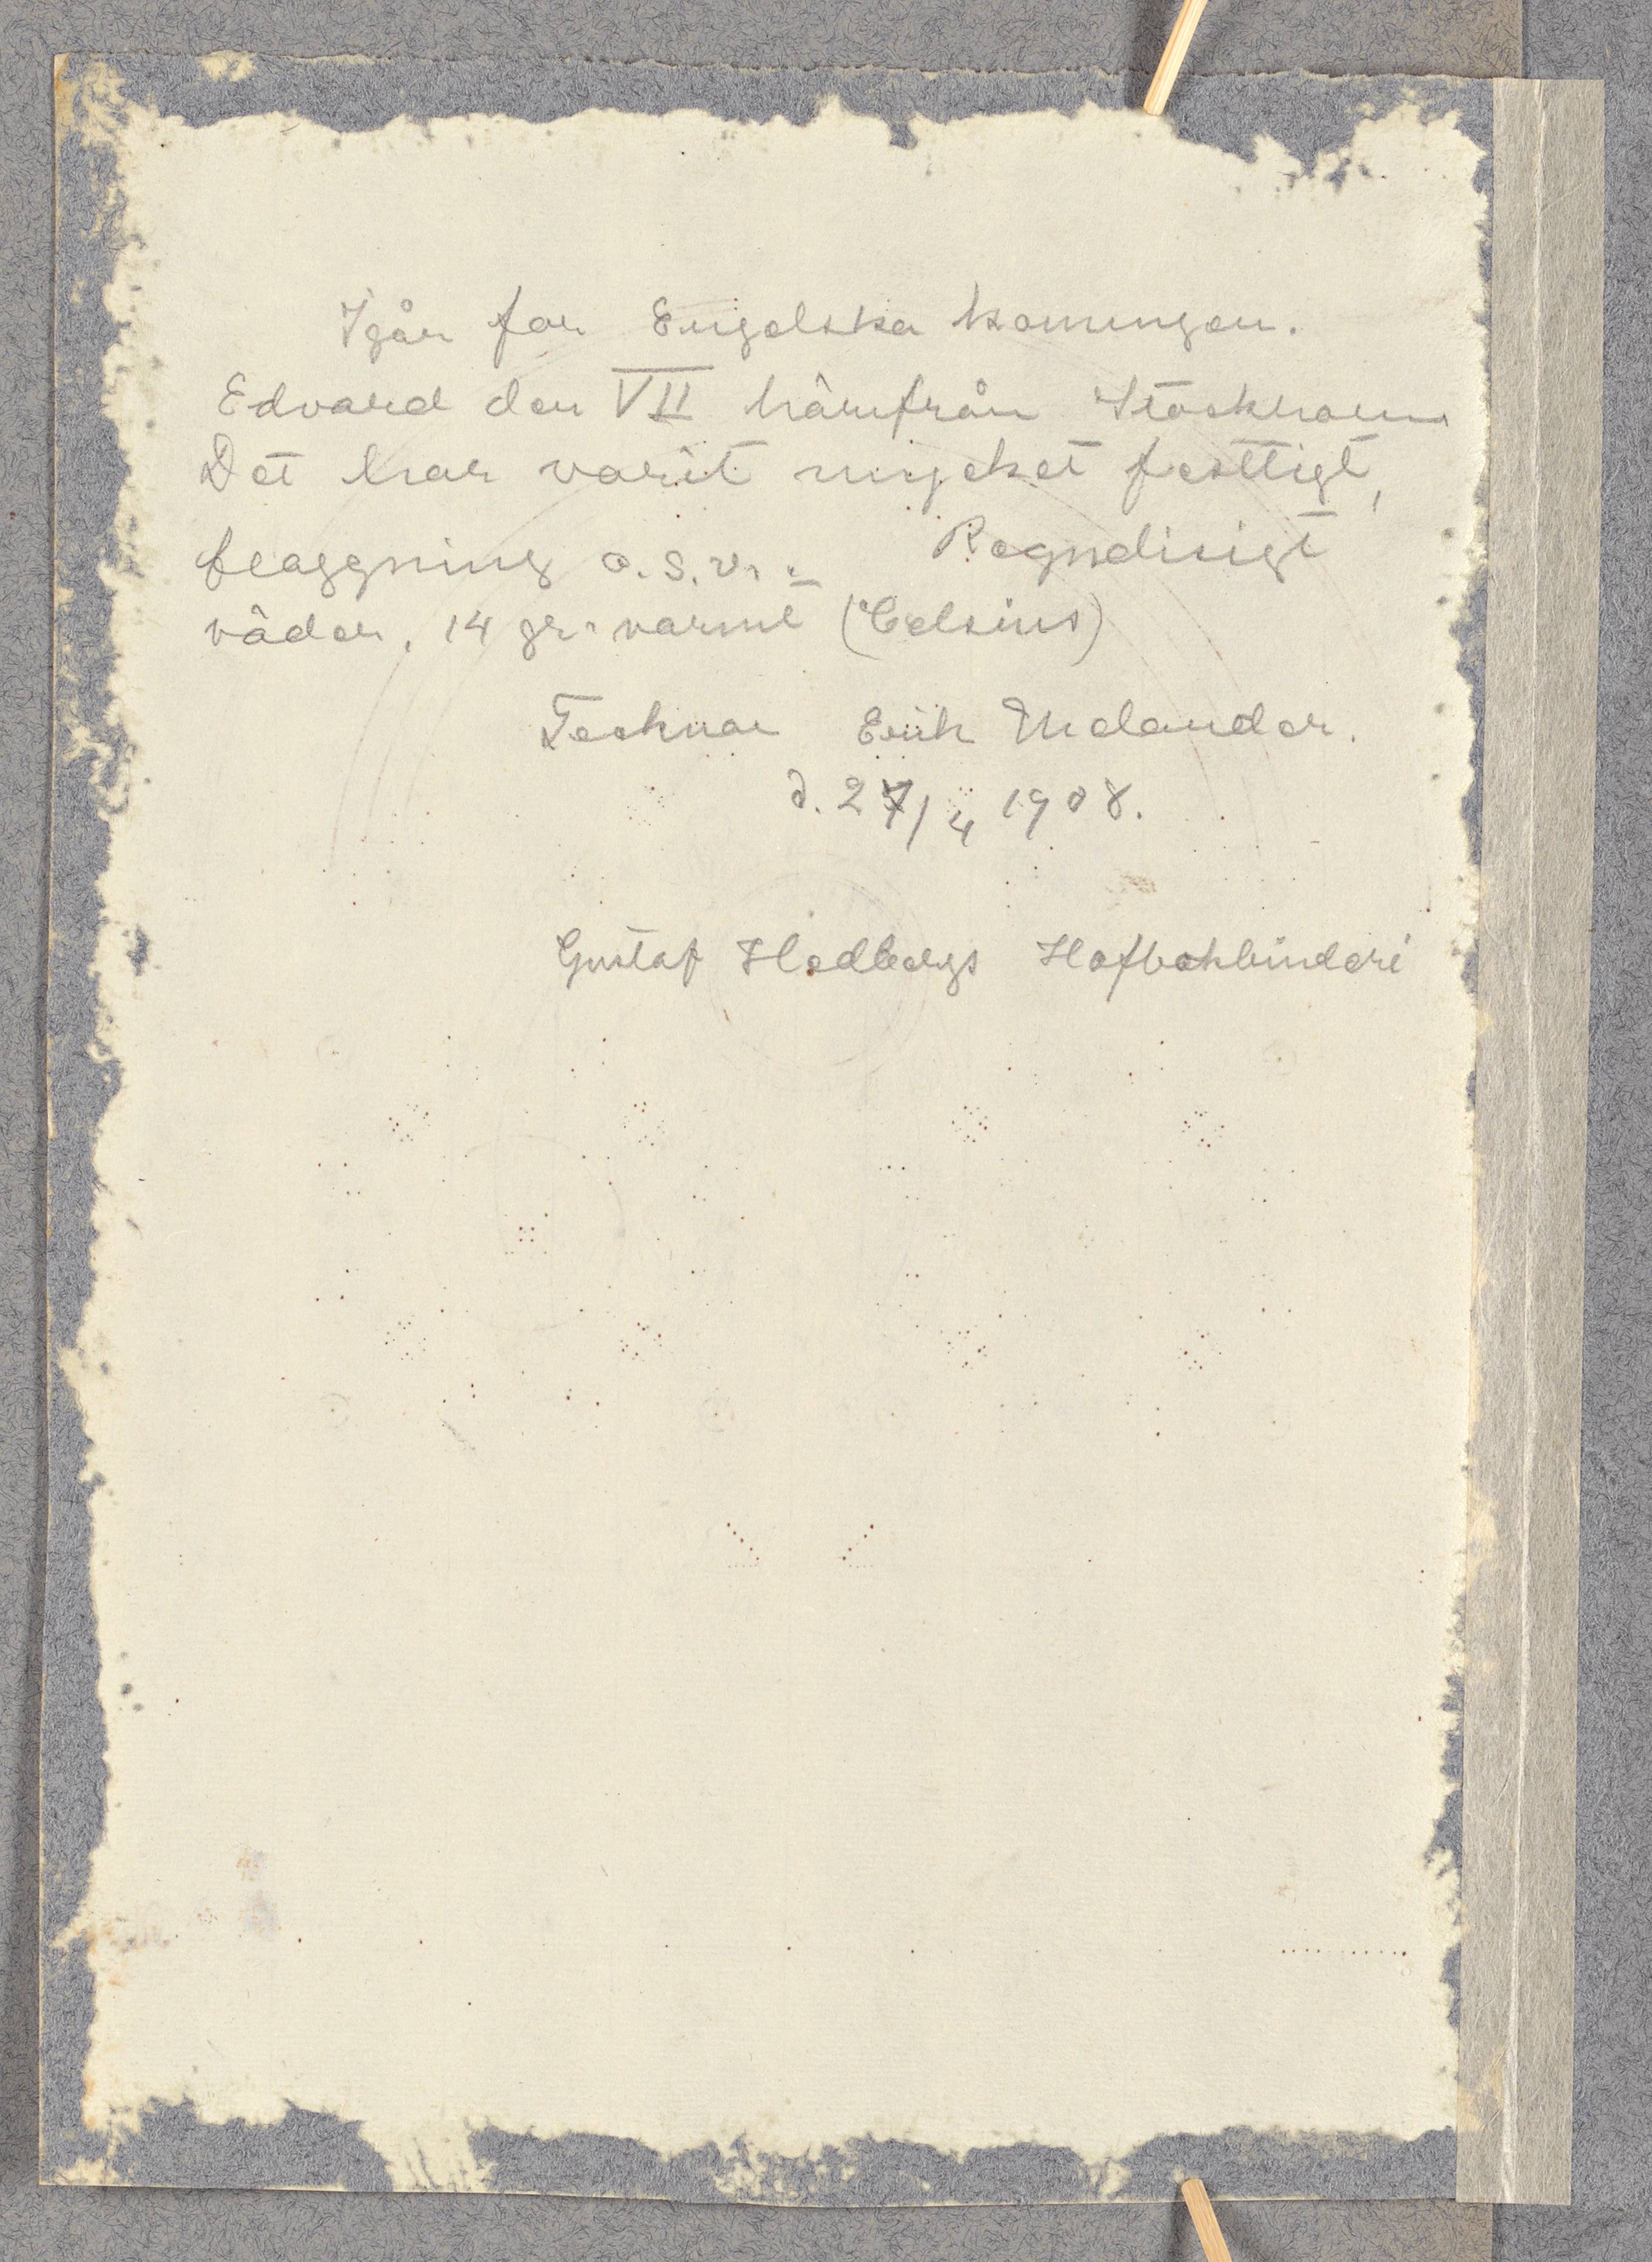 Igår for Engelska konungen.
Edvard den VII härifrån Stockholm
Det har varit mycket festligt,
flaggning o.s.v. Regndisigt
väder, 14 gr. varmt (Celsius)
Tecknar Erik Melander.
d. 27/4 1908.
Gustaf Hedbergs Hofbokbinderi